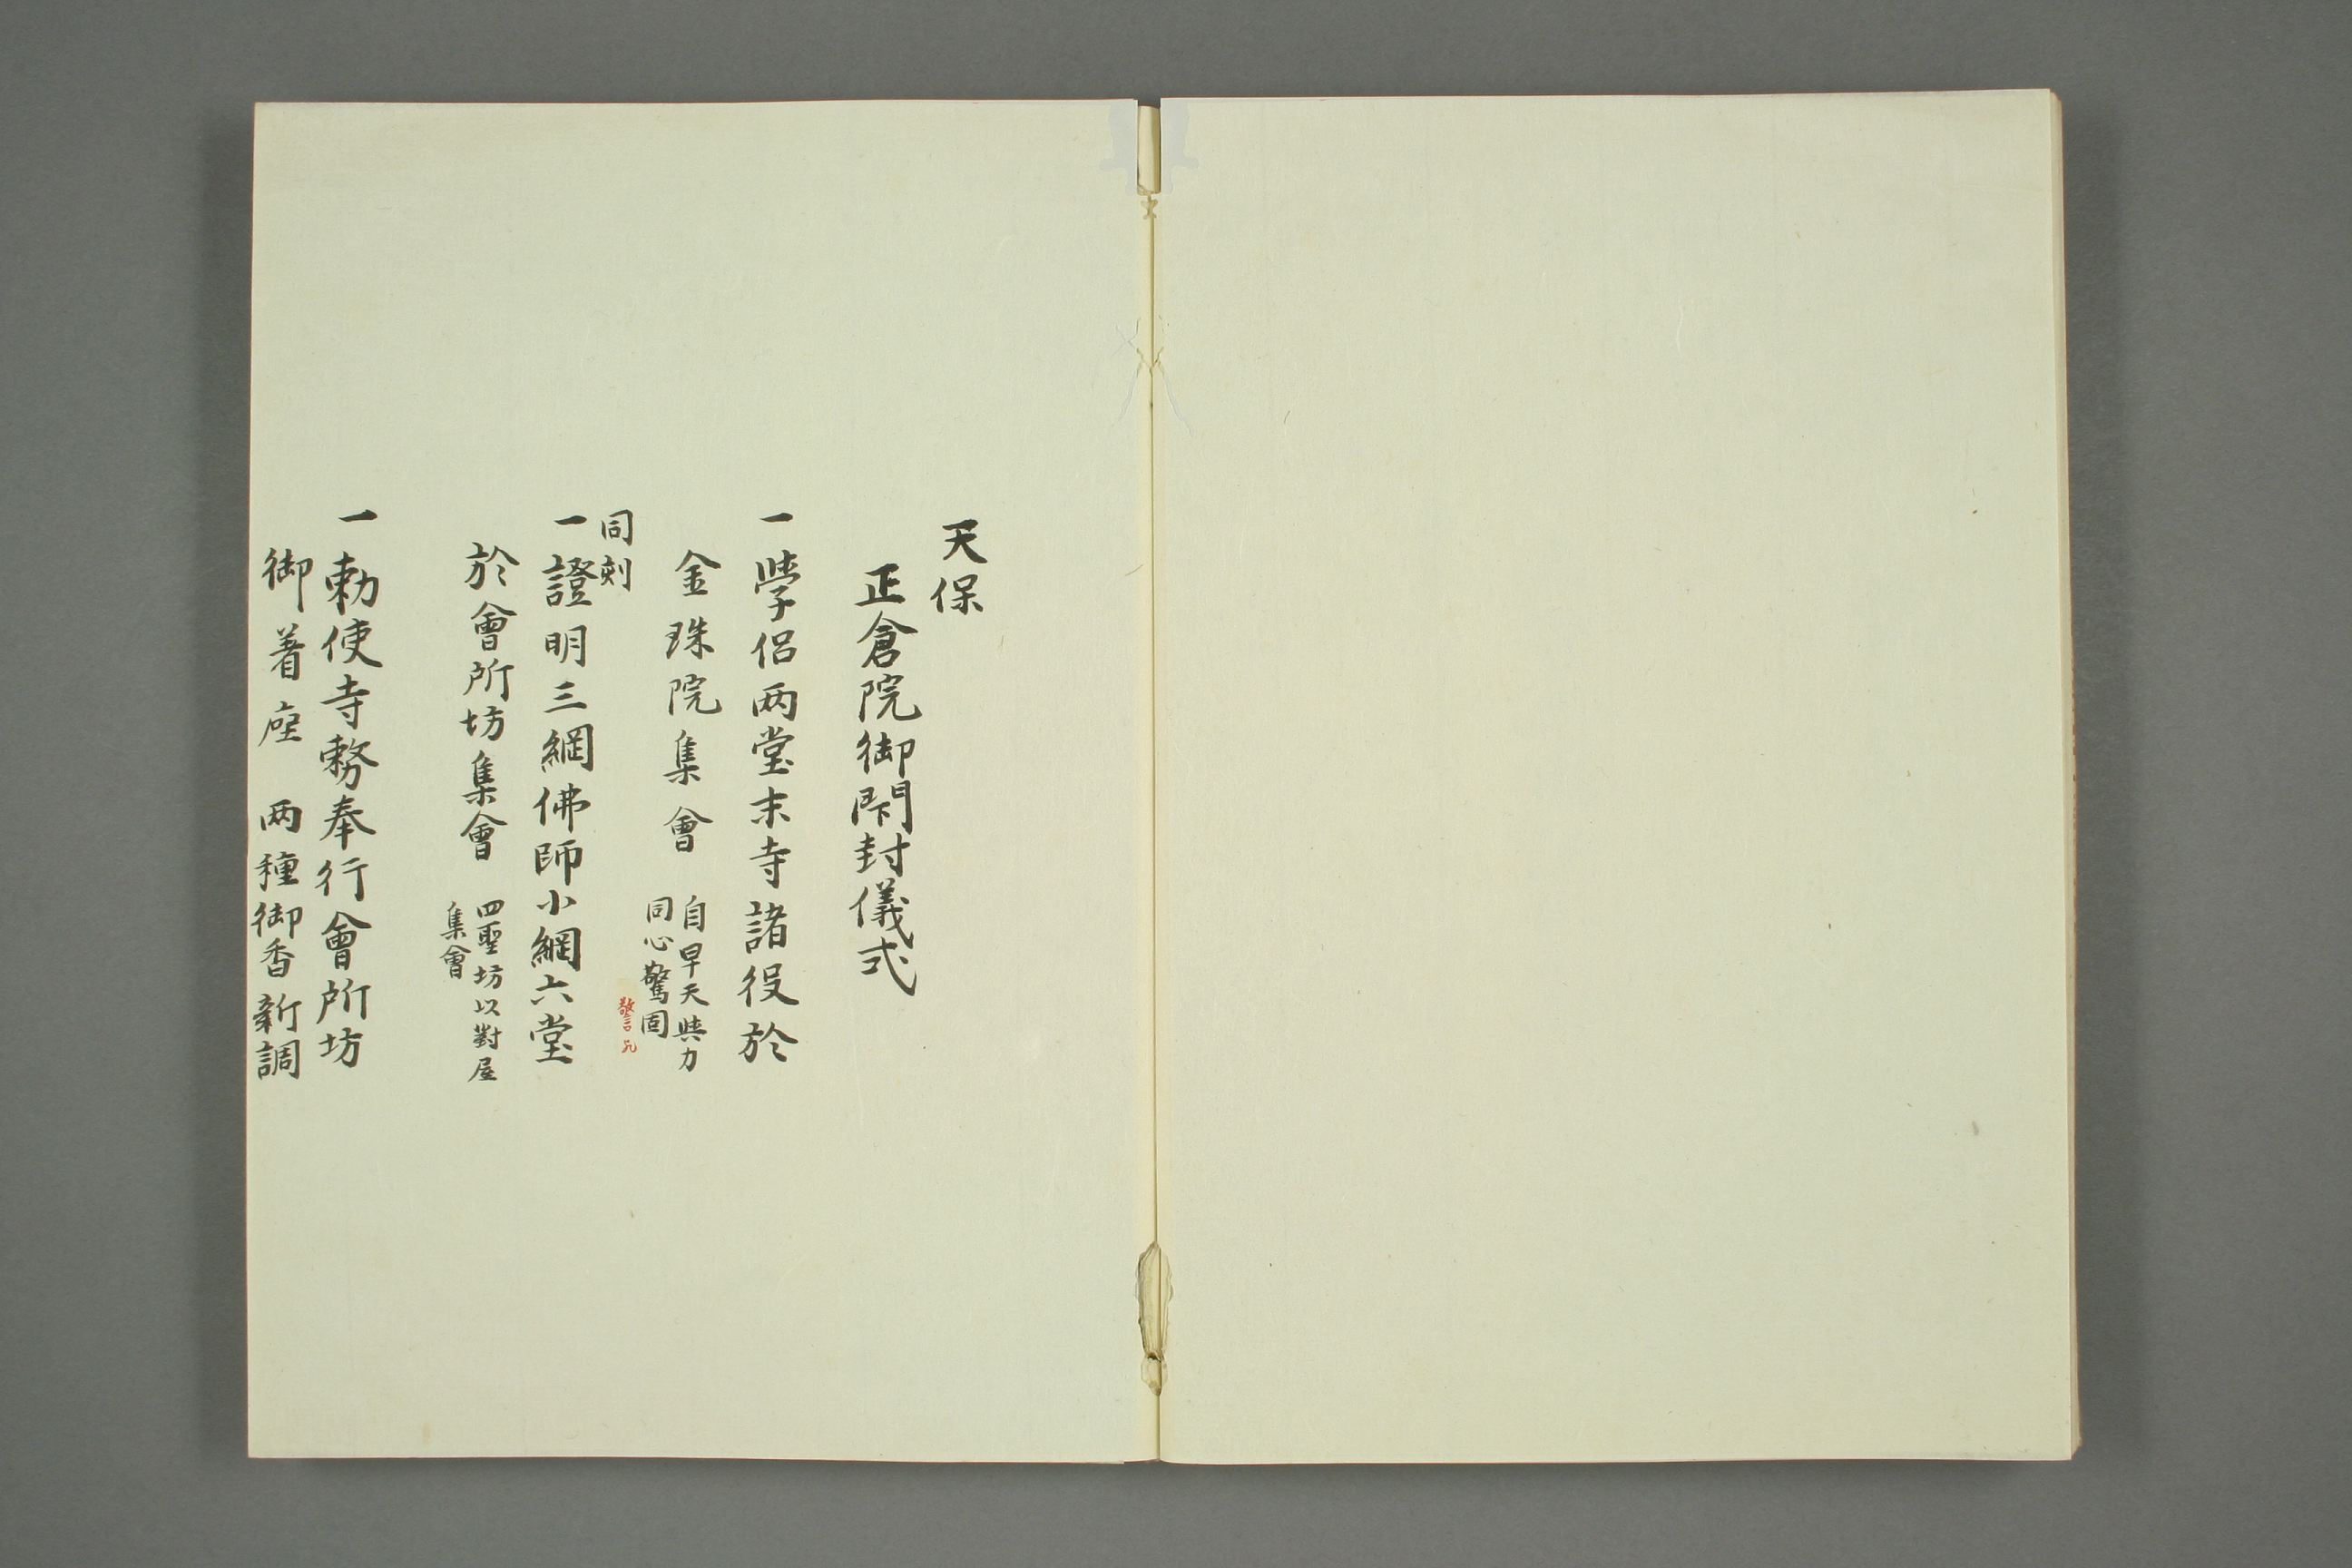 天保
正倉院御開封儀式
一學侶両堂末寺諸役於
金珠院集會
自早天與力
同心驚固
警乎
同刻
一證明三綱佛師小綱六堂
於會所坊集會
四聖坊以對屋
集會
一勅使寺務奉行會所坊
御著座 両種御香新調